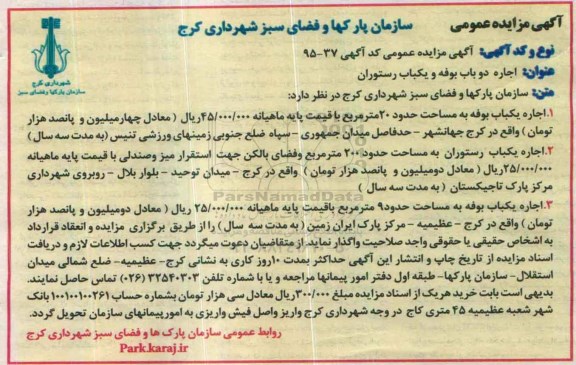 آگهی مزایده عمومی
سازمان پارکها و فضای سبز شهرداری کرج
نوع و کد آگهی: آگهی مزایده عمومی کد آگهی ۳۷-۹۵
عنوان: اجاره دو باب بوفه و یکباب رستوران
متن: سازمان پارکها و فضای سبز شهرداری کرج در نظر دارد:
شهرداری کرج
سازمان پارکها و فضای سبز
۱.اجاره یکباب بوفه به مساحت حدود ۲۰مترمربع با قیمت پایه ماهیانه ۴۵/۰۰۰/۰۰۰ریال ( معادل چهارمیلیون و پانصد هزار
تومان) واقع در کرج جهانشهر - حدفاصل میدان جمهوری - سپاه ضلع جنوبی زمینهای ورزشی تنیس (به مدت سه سال)
۲.اجاره یکباب رستوران به مساحت حدود ۲۰۰ مترمربع وفضای بالکن جهت استقرار میز وصندلی با قیمت پایه ماهیانه
۲۵/۰۰۰/۰۰۰ریال ( معادل دومیلیون و پانصد هزار تومان ) واقع در کرج - میدان توحید - بلوار بلال - روبروی شهرداری
مرکز پارک تاجیکستان ( به مدت سه سال )
۳.اجاره یکباب بوفه به مساحت حدود۹ مترمربع باقیمت پایه ماهیانه ۲۵/۰۰۰/۰۰۰ ریال ( معادل دومیلیون و پانصد هزار
تومان ) واقع در کرج - عظیمیه - مرکز پارک ایران زمین ( به مدت سه سال ) را از طریق برگزاری مزایده و انعقاد قرارداد
به اشخاص حقیقی یا حقوقی واجد صلاحیت واگذار نماید.از متقاضیان دعوت میگردد جهت کسب اطلاعات لازم و دریافت
اسناد مزایده از تاریخ چاپ و انتشار این آگهی حداکثر بمدت ۱۰روز کاری به نشانی کرج- عظیمیه- ضلع شمالی میدان
استقلال- سازمان پارکها- طبقه اول دفتر امور پیمانها مراجعه و یا با شماره تلفن ۳۲۵۴۰۳۰۳ (۰۲۶) تماس حاصل نمایند.
بدیهی است بابت خرید هریک از اسناد مزایده مبلغ ۳۰۰/۰۰۰ریال معادل سی هزار تومان بشماره حساب ۱۰۰۱۰۰۱۰۰۲۶۱ بانک
شهر شعبه عظیمیه ۴۵ متری کاج در وجه شهرداری کرج واریز واصل فیش واریزی به امورپیمانهای سازمان تحویل گردد.
روابط عمومی سازمان پارک ها و فضای سبز شهرداری کرج
Park.karaj.ir
ParsNamadData